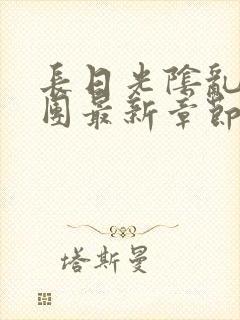 長日光陰亂
團最新章節
塔斯曼